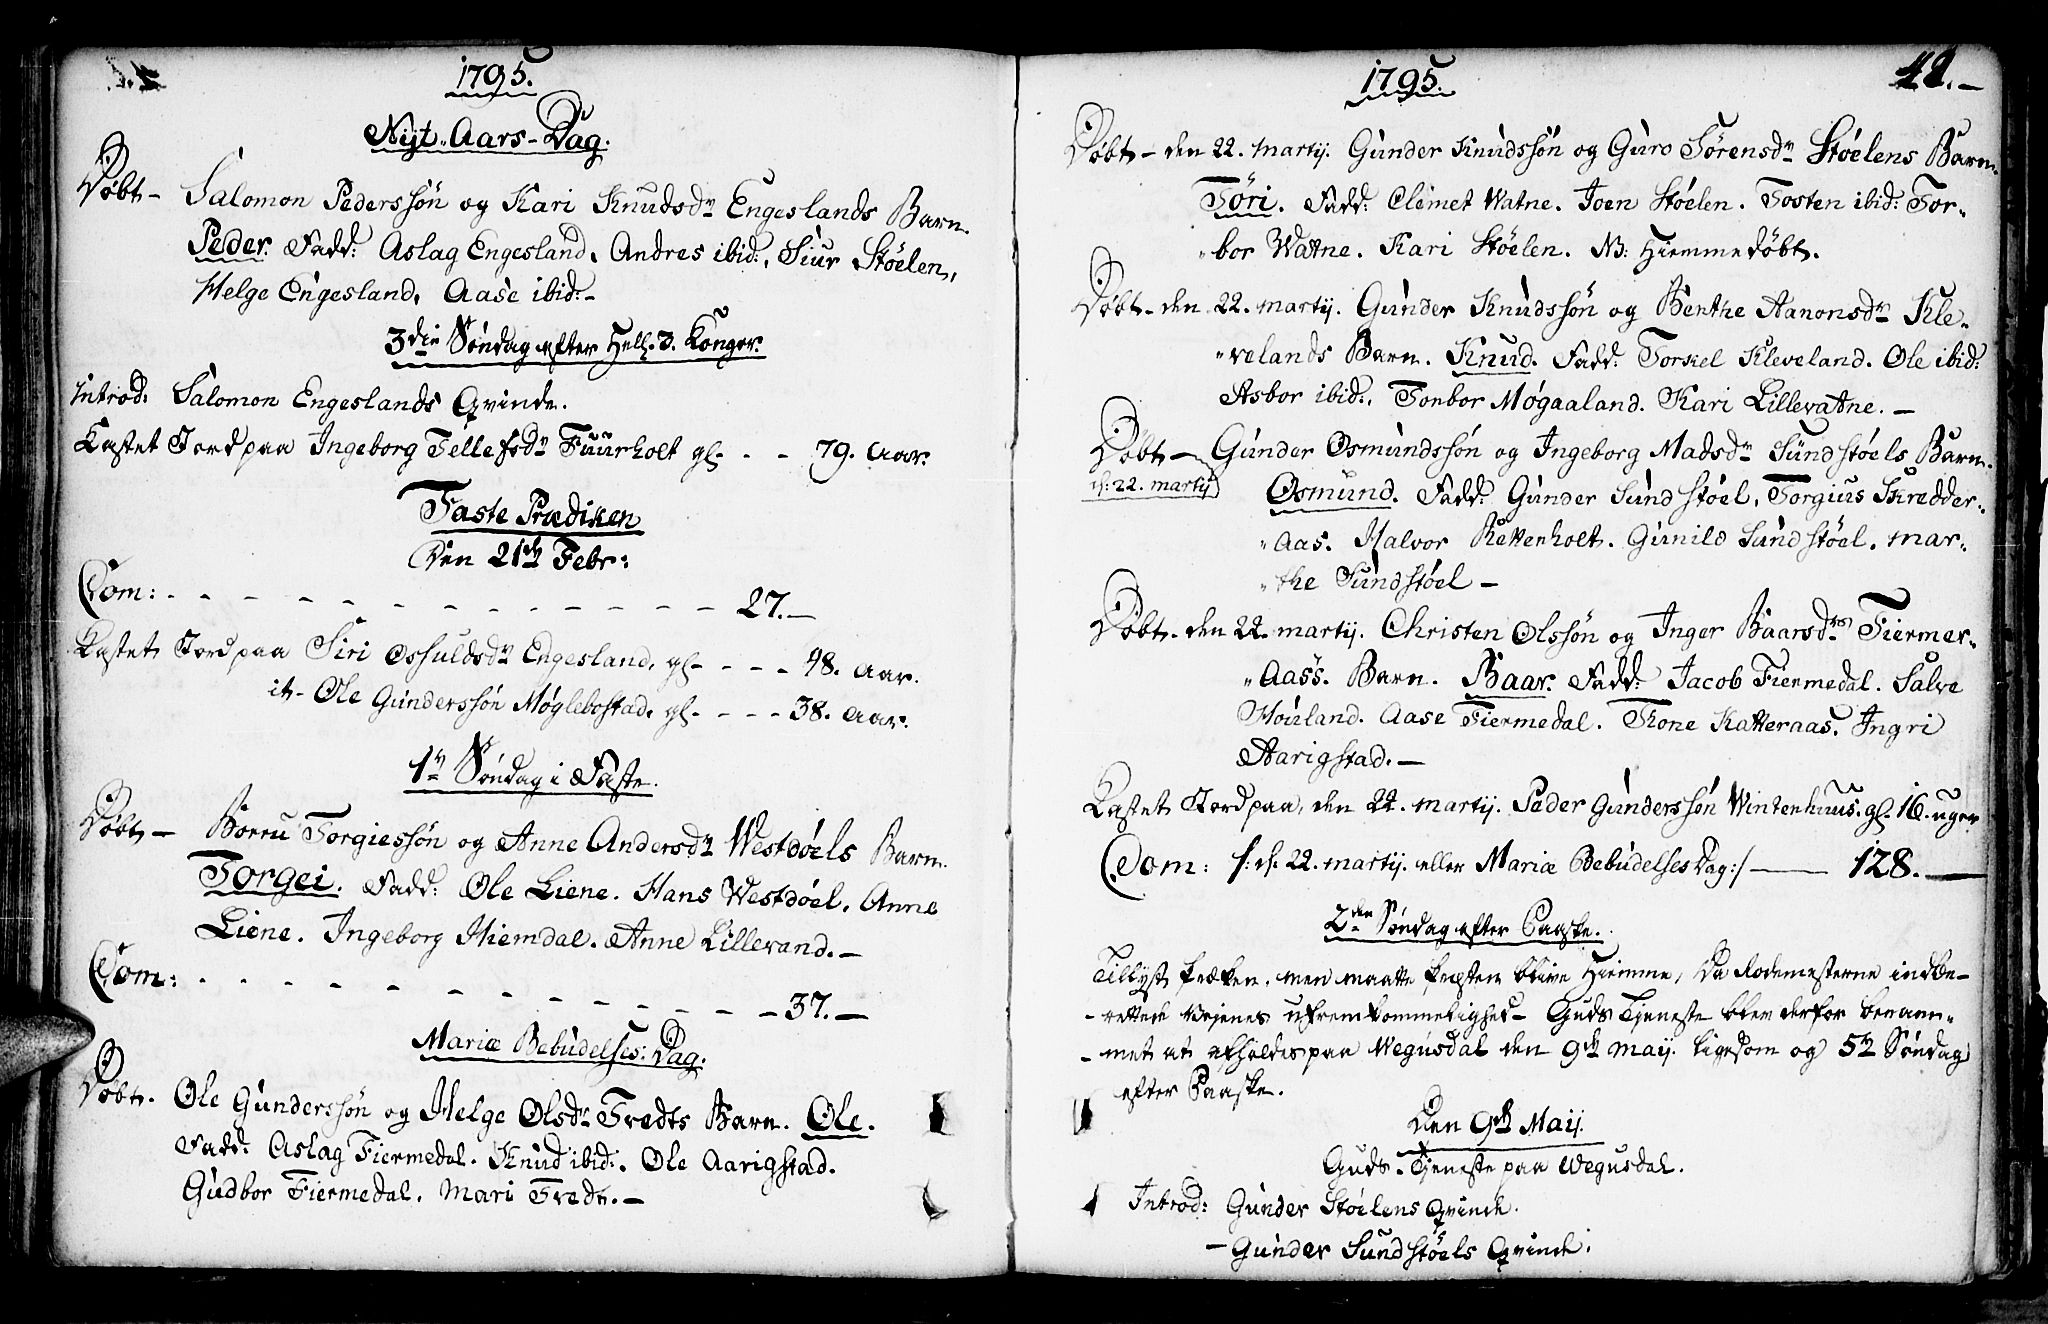 1795.
Nyt-Aars-Dag.
Døbt - Salomon Pederssøn og Kari Knudsdr Engeslands Barn.
Peder. Fadd: Aslag Engesland. Andres ibid:, Siur Støelen,
Helge Engesland, Aase ibid: -
3die Søndag efter Hell. 3. Konger.
Introd: Salomon Engeslands Qvinde.
Kastet Jord paa Ingeborg Tellefsdr Fuurholt gl. - - - 79. Aar.
Faste Prædiken
Den 21de Febr:
Com: - - - - - - - - - - - - - 27. -
Kastet Jord paa Siri Osfuldsdr Engesland, gl. - - - - 48. Aar.
it - Ole Gunderssøn Møglebostad, gl. - - - - 38. Aar.
1te Søndag i Faste.
Døbt - Borru Torgiessøn og Anne Andersdr Westdøels Barn.
Torgei. Fadd: Ole Liene. Hans Westdøel. Anne
Liene. Ingeborg Hiemdal. Anne Lillevand. -
Com: - - - - - - - - - - - - - 37. -
Mariæ Bebudelses: Dag.
Døbt. Ole Gunderssøn og Helge Olsdr Tredts Barn. Ole.
Fadd: Aslag Fiermedal. Knud ibid:. Ole Aarigstad.
Gudbor Fiermedal. Mari Tredt. -
1795. 42. -
Døbt - den 22. martij. Gunder Knudssøn og Guro Sørensdr Støelens Barn.
Töri. Fadd: Clemet Watne. Joen Støelen. Tosten ibid: Tor-
bor Watne. Kari Støelen. NB: Hiemmedøbt.
Døbt - den 22. martij. Gunder Knudssøn og Benthe Aanonsdr Kle-
velands Barn. Knud. Fadd: Torkel Kleveland. Ole ibid:
Asbor ibid:, Tonbor Møgaaland. Kari Lillevatne. -
Døbt - Gunder Osmundssøn og Ingeborg Madsdr Sundstøels Barn.
d: 22. martij Osmund. Fadd: Gunder Sundstøel, Torgius Skredder-
aas. Halvor Rettenholt. Gunild Sundstøel. Mar-
the Sundstøel -
Døbt. den 22. martij. Christen Olssøn og Inger Baarsdr Fiermer-
Aass. Barn. Baar. Fadd: Jacob Fiermedal. Salve
Houland. Aase Fiermedal. Tone Katteraas. Ingri
Aarigstad. -
Kastet Jord paa, den 22. martij. Peder Gunderssøn Wintenhuus. gl. 16. uger
Com: /: d. 22. martij. eller Mariæ Bebudelses Dag :/ - 128. -
2den Søndag efter Paaske.
Tillyst Præken. men maatte Præsten blive Hiemme, Da Rodemesterne indbe-
rettede Vejenes ufremkommelighed - Guds Tjeneste blev derfor beram-
met at afholdes paa Wegusdal den 9de Maij. ligesom og 5te Søndag
efter Paaske.
Den 9de Maij.
Guds-Tjeneste paa Wegusdal.
Introd: Gunder Støelens Qvinde.
- Gunder Sundstøels Qvinde.